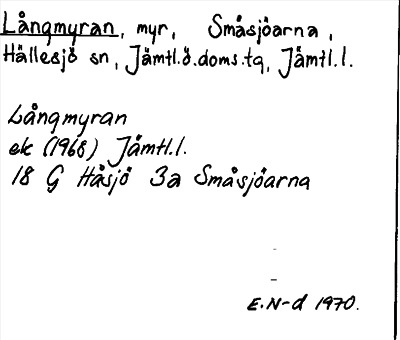 Långmyran, myr, Småsjöarna,
Hällesjö sn, Jämtl.ö.doms.tg, Jämtl.l.
Långmyran
ek (1968) Jämtl.l.
18 G Håsjö 3a Småsjöarna
E.N-d 1970.